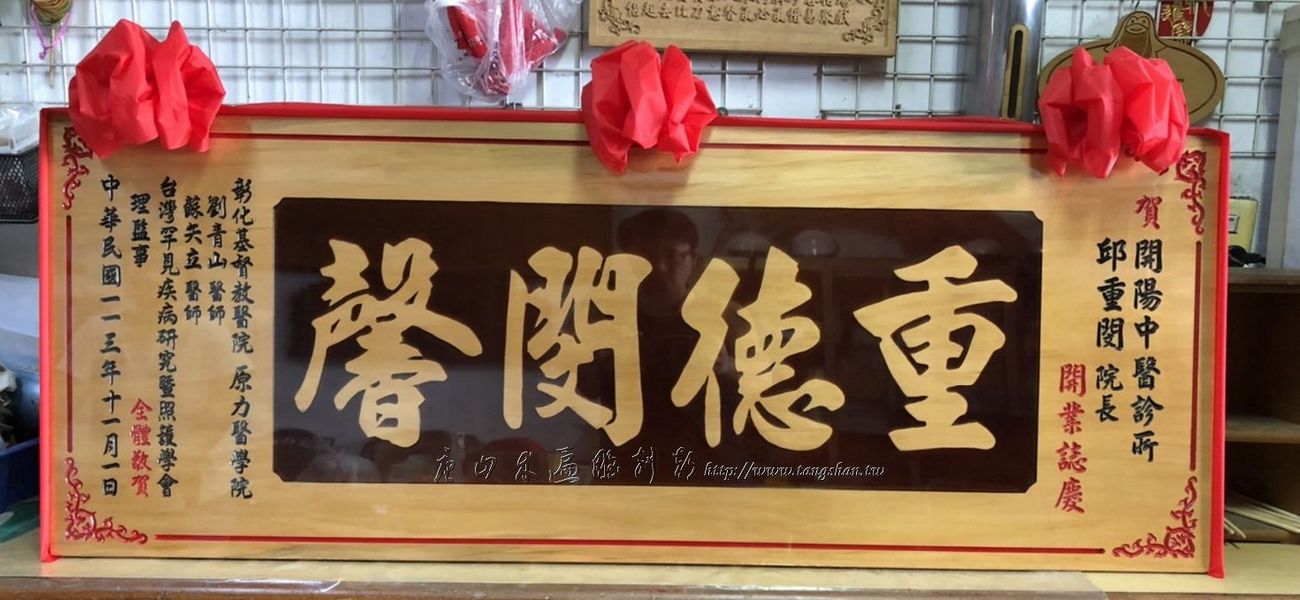 賀
開陽中醫診所
邱重閔 院長
開業誌慶
重德閔馨
彰化基督教醫院 原力醫學院
劉青山醫師
蘇矢立醫師
台灣罕見疾病研究暨照護學會
理監事
全體敬賀
中華民國一一三年十一月一日
http://www.tangshan.tw